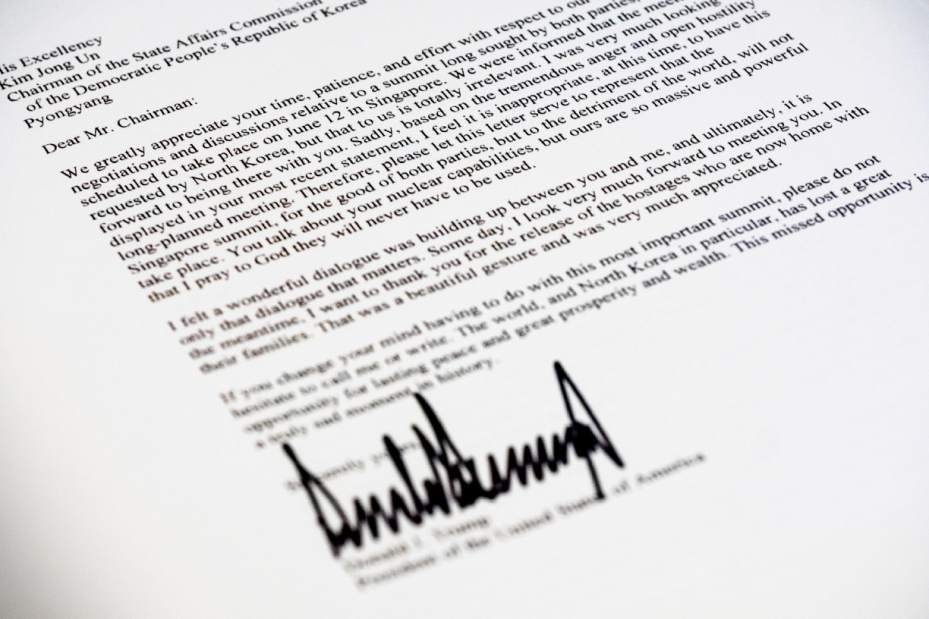 is Excellency
Kim Jong Un
Chairman of the State Affairs Commission
of the Democratic People's Republic of Korea
Pyongyang
Dear Mr. Chairman:
We greatly appreciate your time, patience, and effort with respect to our
negotiations and discussions relative to a summit long sought by both parties,
scheduled to take place on June 12 in Singapore. We were informed that the meeti
requested by North Korea, but that to us is totally irrelevant. I was very much looking
forward to being there with you. Sadly, based on the tremendous anger and open hostility
displayed in your most recent statement, I feel it is inappropriate, at this time, to have this
long-planned meeting. Therefore, please let this letter serve to represent that the
Singapore summit, for the good of both parties, but to the detriment of the world, will not
take place. You talk about your nuclear capabilities, but ours are so massive and powerful
that I pray to God they will never have to be used.
I felt a wonderful dialogue was building up between you and me, and ultimately, it is
only that dialogue that matters. Some day, I look very much forward to meeting you. In
the meantime, I want to thank you for the release of the hostages who are now home with
their families. That was a beautiful gesture and was very much appreciated.
If you change your mind having to do with this most important summit, please do not
hesitate to call me or write. The world, and North Korea in particular, has lost a great
opportunity for lasting peace and great prosperity and wealth. This missed opportunity is
a truly sad moment in history.
Donald J. Trump
President of the United States of America